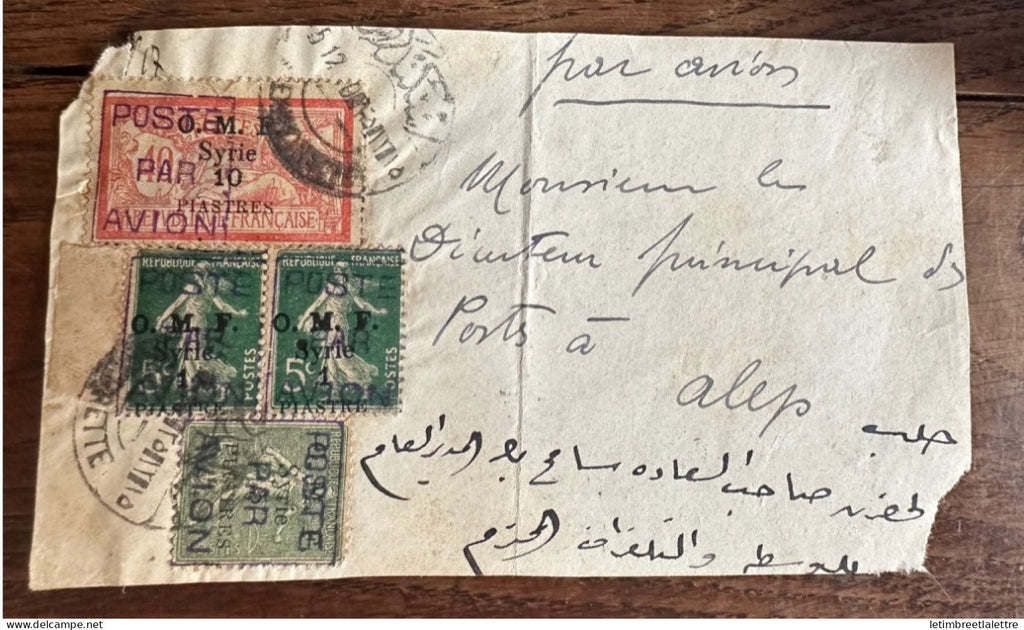 par avion
Monsieur le
Directeur principal des
Postes à
Alep
حلب
صاحب السعادة سامح بك المدير العام
والتلغراف المحترم
POSTE
PAR
AVION
O. M. F.
Syrie
10
PIASTRES
40
FRANÇAISE
REPUBLIQUE FRANÇAISE
POSTE
PAR
AVION
O. M. F.
Syrie
1
PIASTRE
5c
POSTES
REPUBLIQUE FRANÇAISE
POSTE
PAR
AVION
O. M. F.
Syrie
1
PIASTRE
5c
POSTES
POSTE
PAR
AVION
Syrie
PIASTRES
letimbreetlalettre